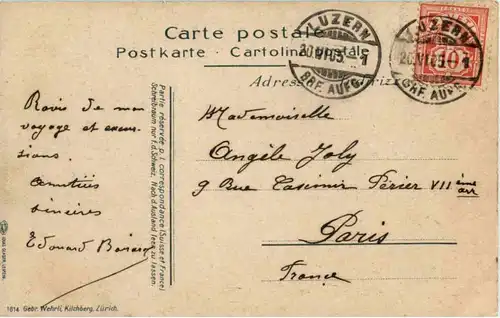 Carte postale
Postkarte · Cartolina postale
Adresse
LUZERN
20.VI.05. 1
BRF. AUFG.
LUZERN
20.VI.05. 1
BRF. AUFG.
10
Partie réservée p. l. correspondance (Suisse et France)
Schreibraum nur f. d. Schweiz. Nach d'Ausland leer zu lassen.
Ravi de mon
voyage et excur-
sions.
Amitiés
sincères
Edouard
Mademoiselle
Angèle Joly
9 Rue Casimir Périer VII ème
arr
Paris
France
1614 Gebr. Wehrli, Kilchberg, Zürich.